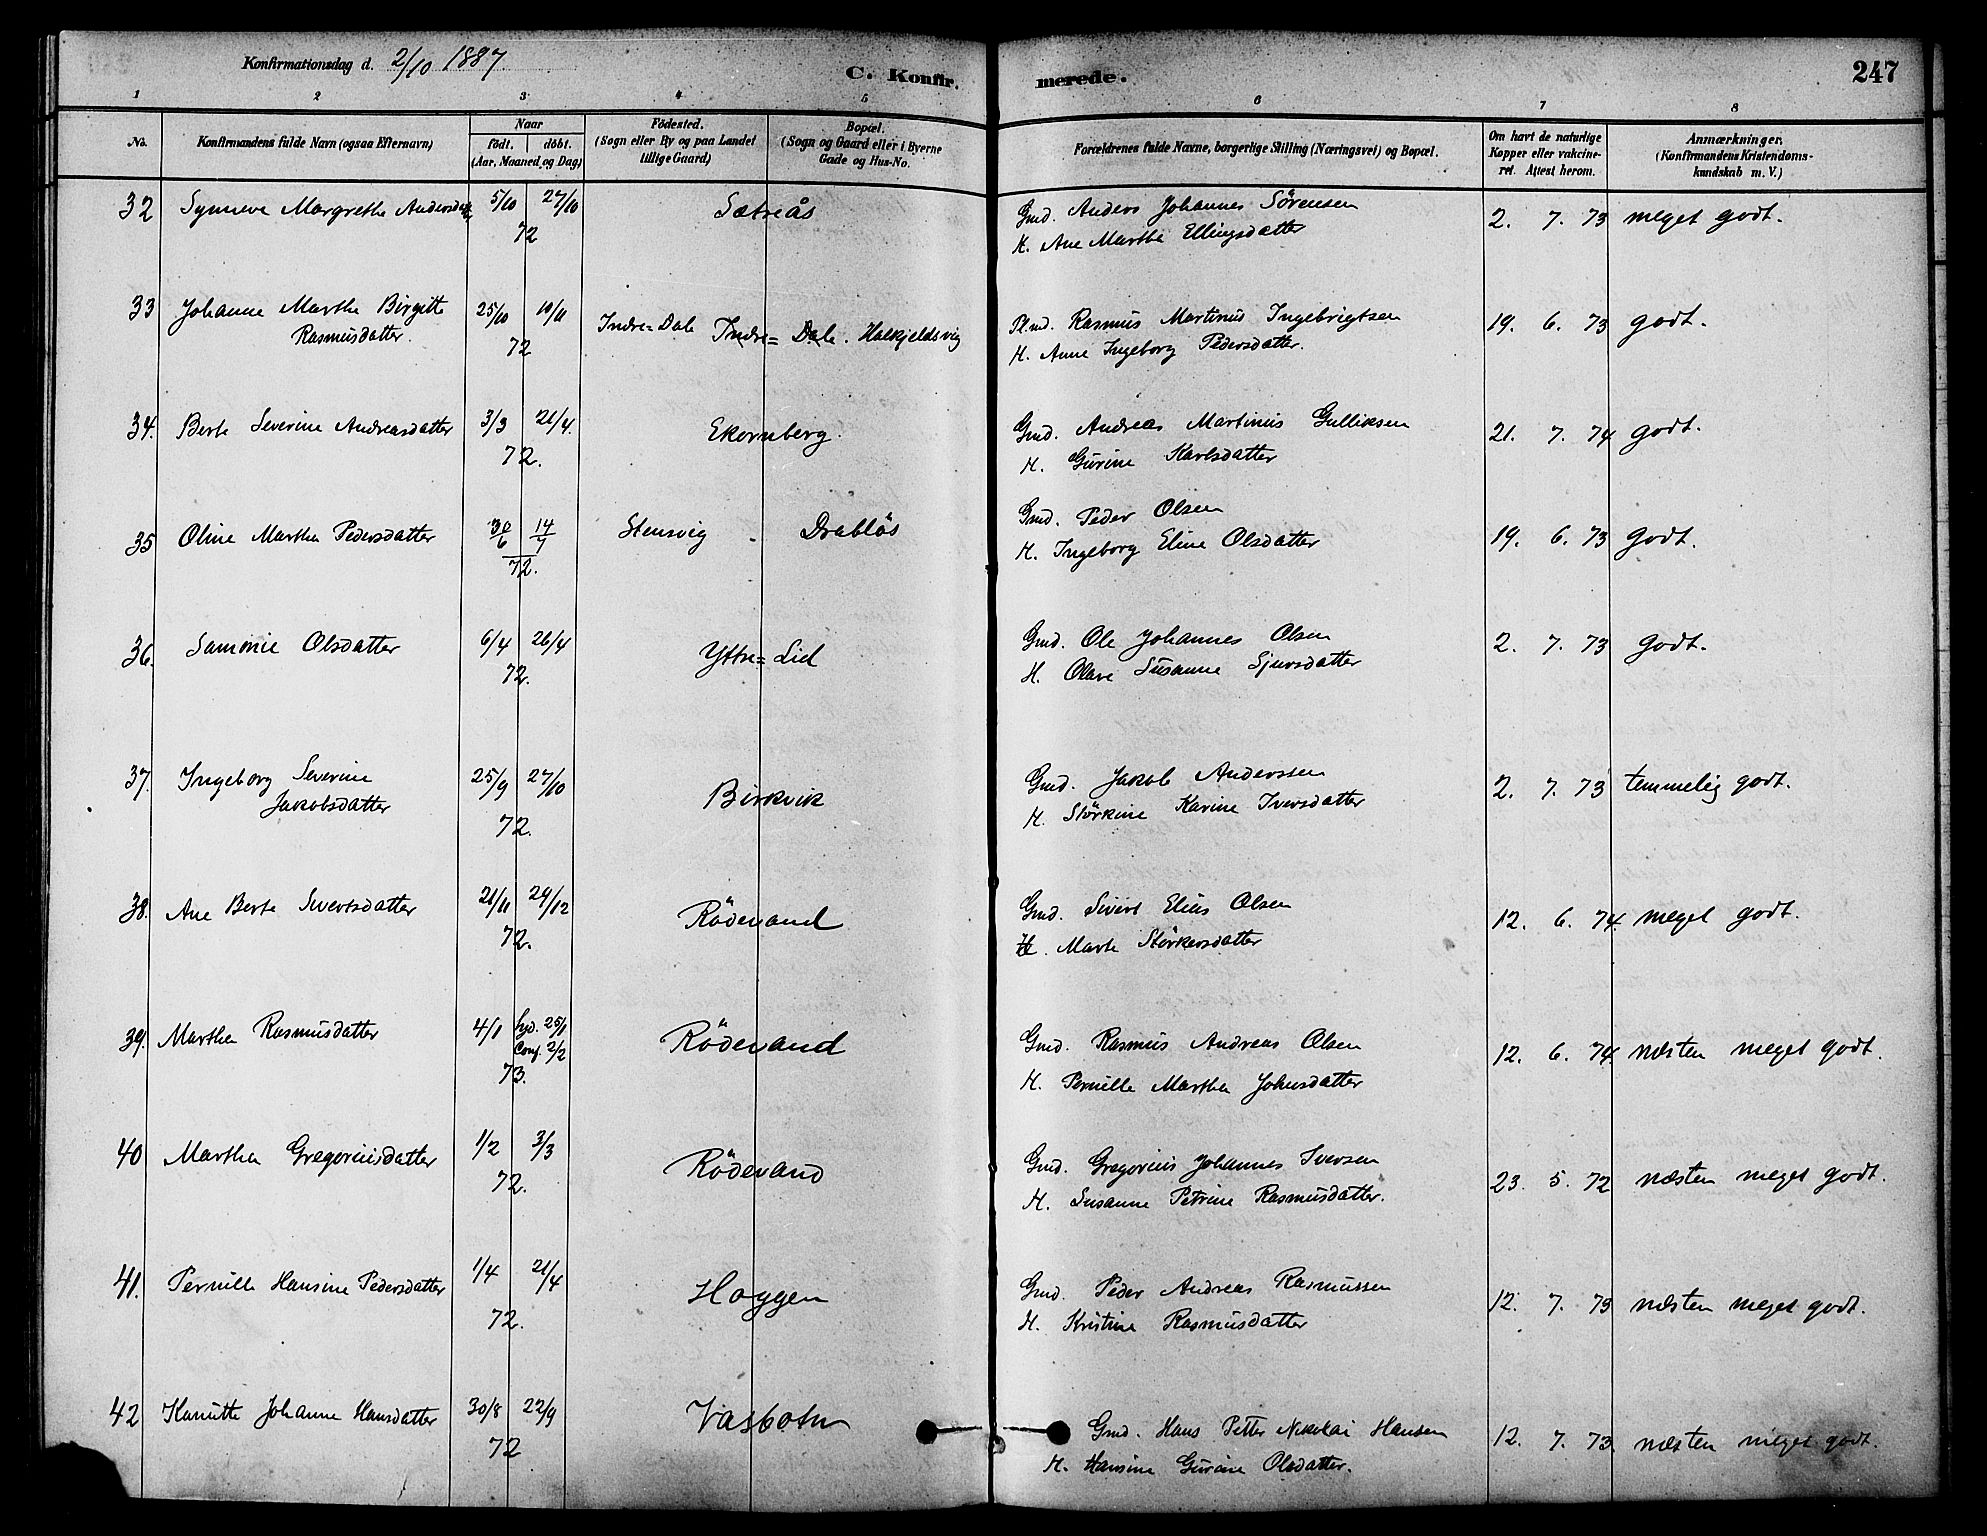 Konfirmationsdag d. 2/10 1887.
C. Konfirmerede.
247
1 2 3 4 5 6 7 8
No.
Konfirmandens fulde Navn (ogsaa Efternavn)
Naar
födt. döbt.
(Aar, Maaned og Dag)
Födested.
(Sogn eller By og paa Landet
tillige Gaard)
Bopæl.
(Sogn og Gaard eller i Byerne
Gade og Hus-No.
Forældrenes fulde Navne, borgerlige Stilling (Næringsvei) og Bopæl.
Om havt de naturlige
Kopper eller vakcine-
ret. Attest herom.
Anmærkninger.
(Konfirmandens Kristendoms-
kundskab m. V.)
32 Synneve Margrethe Andersdtr 5/10 27/10 Sætreås Gmd. Anders Johannes Sörensen 2. 7. 73 meget godt.
72 H. Ane Marthe Ellingsdatter
33 Johanne Marthe Birgitte 25/10 10/11 Indre=Dale Indre=Dale. Halkjeldsvig Pl.md. Rasmus Martinus Ingebrigtsen 19. 6. 73 godt.
Rasmusdatter. 72 H. Anne Ingeborg Pedersdatter.
34. Berte Severine Andreasdatter 3/3 21/4. Ekornberg. Gmd. Andreas Martinus Gulliksen 21. 7. 74 godt.
72. H. Gurine Karlsdatter
35 Oline Martha Pedersdatter 30/6 14/7 Stensvig Drabløs Gmd. Peder Olsen 19. 6. 73 godt.
72. H. Ingeborg Eline Olsdatter
36. Samonie Olsdatter 6/4 26/4 Yttre=Lid Gmd. Ole Johannes Olsen 2. 7. 73 godt.
72. H. Olave Susanne Sjursdatter
37. Ingeborg Severine 25/9 27/10 Birkvik Gmd. Jakob Anderssen 2. 7. 73 temmelig godt.
Jakobsdatter 72. H. Störkine Karine Iversdatter
38. Ane Berte Sivertsdatter 21/11 24/12 Rödevand Gmd. Sivert Elias Olsen 12. 6. 74. meget godt.
72. H. Marte Störkersdatter
39. Martha Rasmusdatter 4/1 hjd. 25/1 Conf. 2/2 Rödevand Gmd. Rasmus Andreas Olsen 12. 6. 74. næsten meget godt.
73. H. Pernille Martha Johnsdatter
40 Martha Gregoriusdatter 1/2 3/3 Rödevand Gmd. Gregorius Johannes Iversen 23. 5. 72 næsten meget godt.
72. H. Susanne Petrine Rasmusdatter.
41. Pernille Hansine Pedersdatter 1/4 21/4 Haggen Gmd. Peder Andreas Rasmussen 12. 7. 73 næsten meget godt.
72. H. Kristine Rasmusdatter
42 Hanutte Johanne Hansdatter 30/8 22/9 Vasbotn Gmd. Hans Petter Nikolai Hansen 12. 7. 73 næsten meget godt.
72 H. Hansine Gurine Olsdatter.